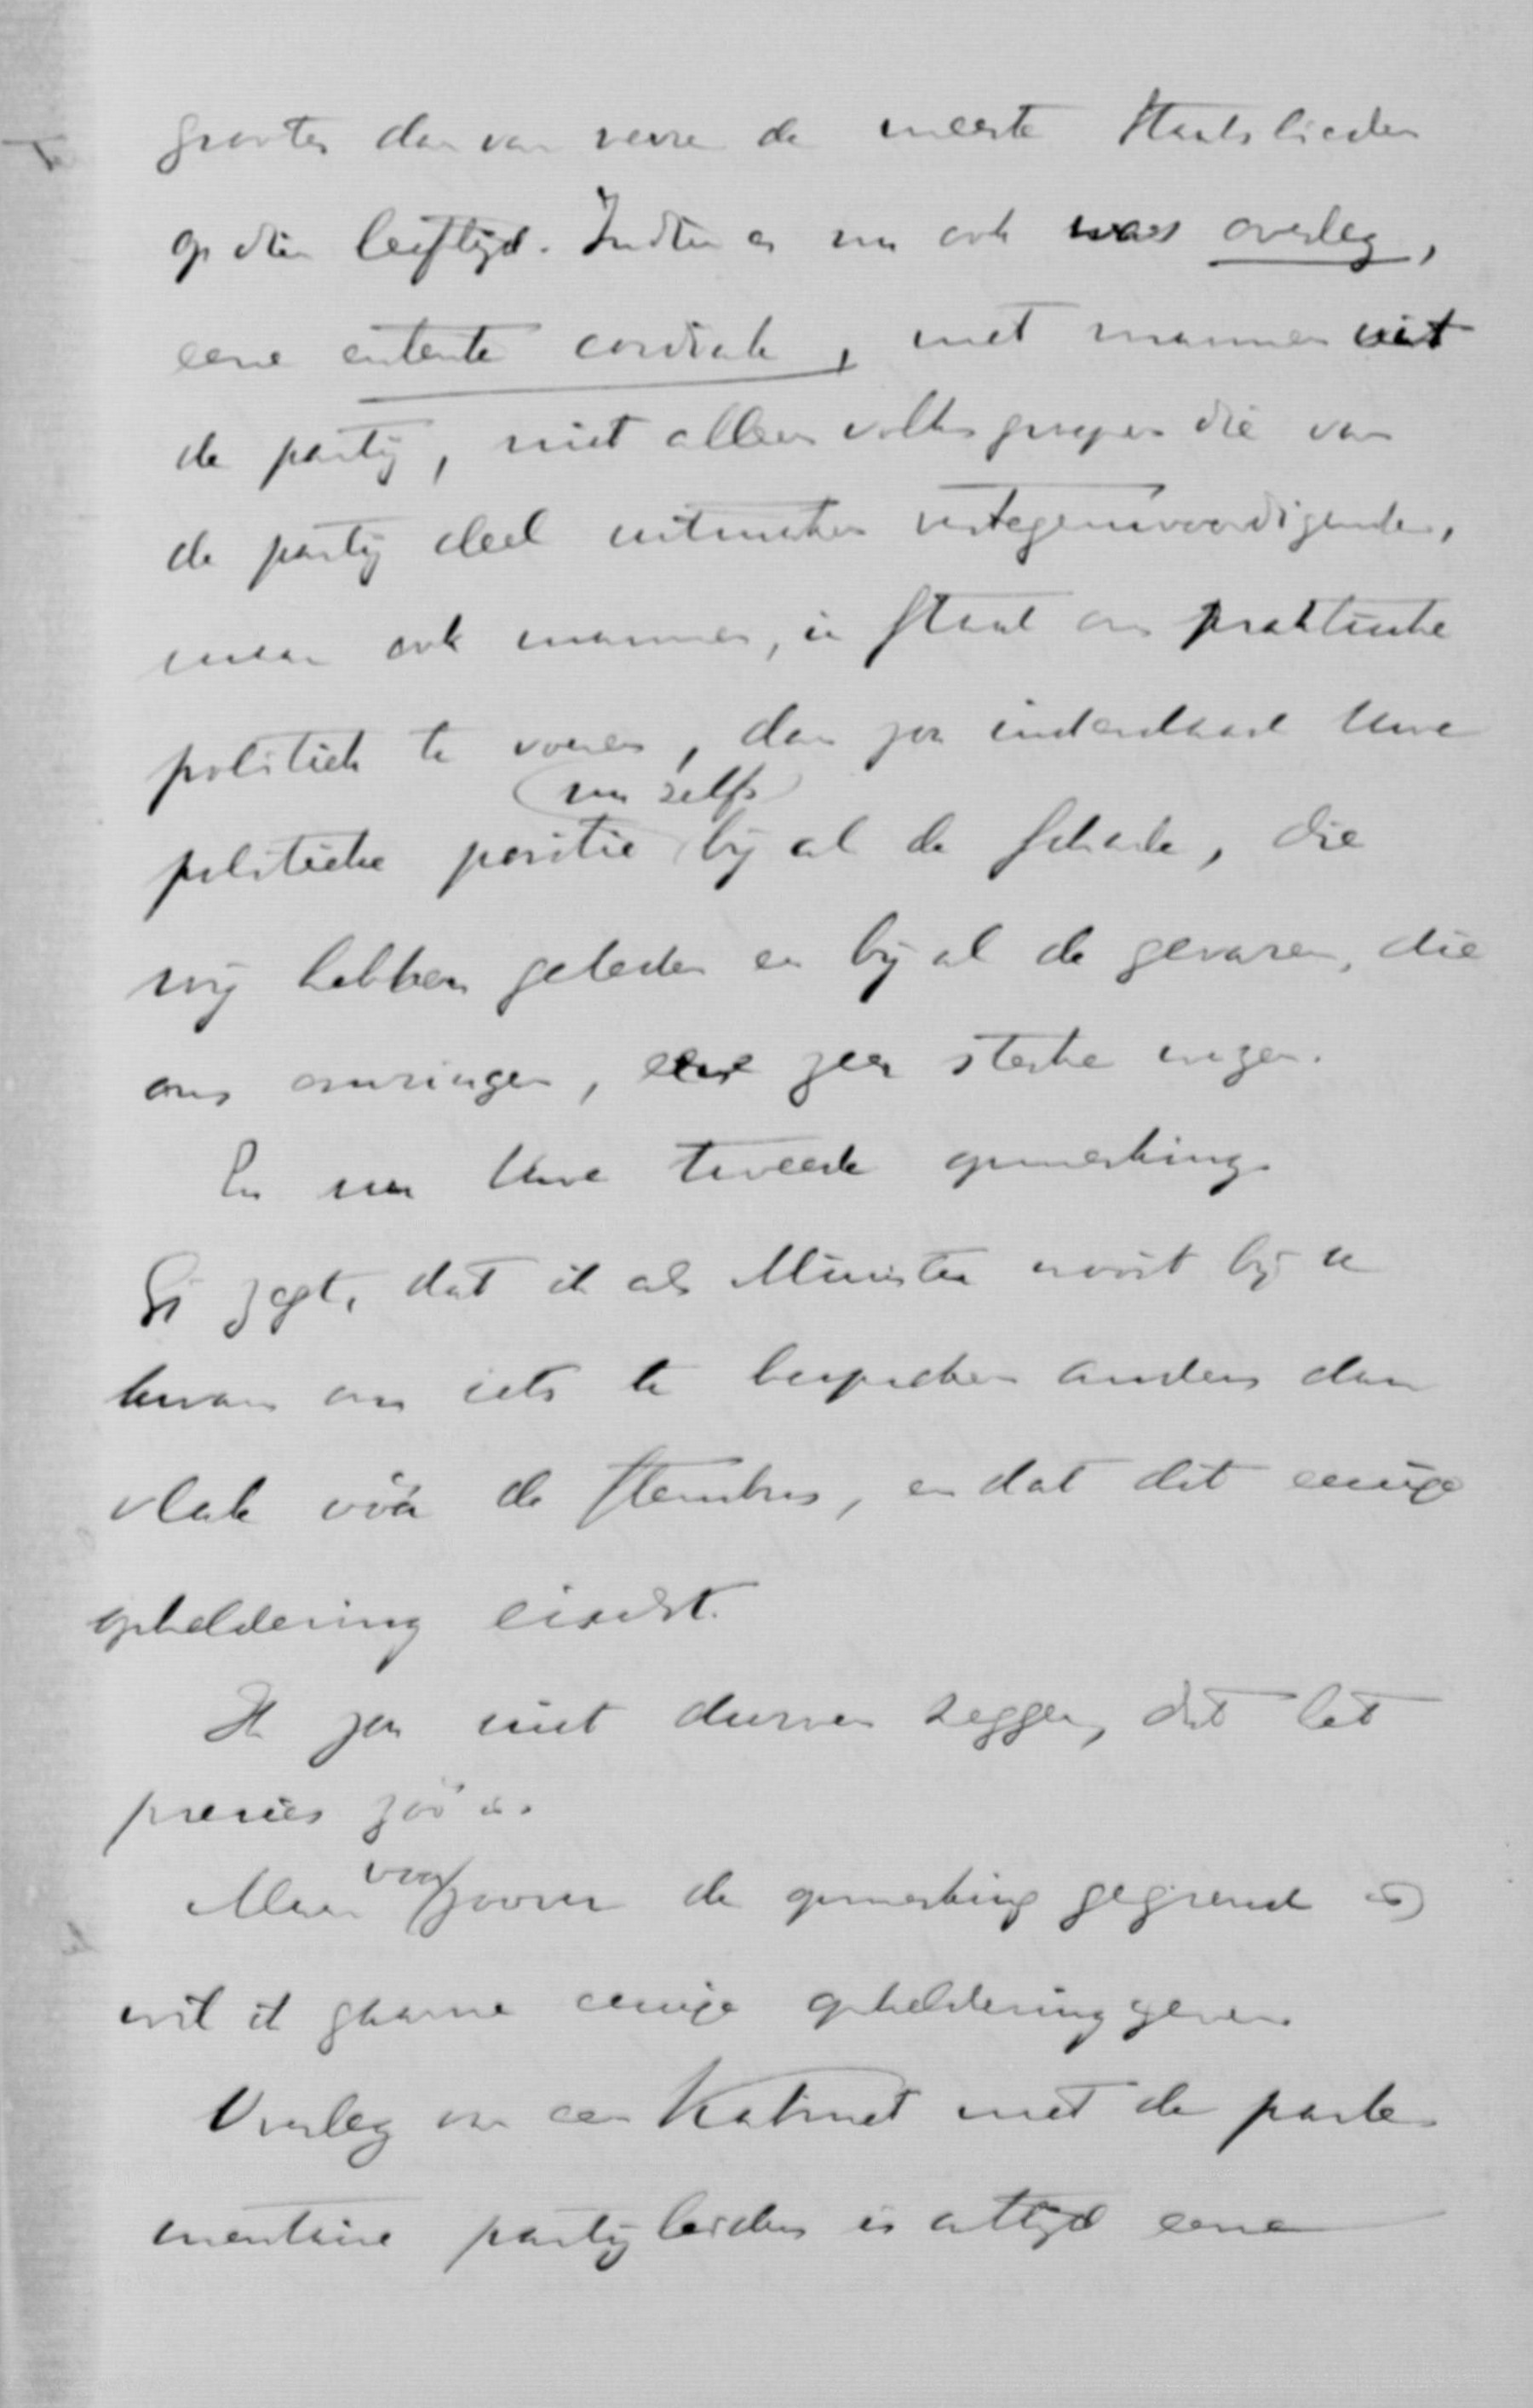 grooter dan van verre de meeste Staatslieden
op dien leeftijd. Indien er nu ook was overleg,
eene entente cordiale, met mannen uit
de partij, niet alleen volksgroepen die van
de partij deel uitmaken vertegenwoordigende,
maar ook mannen, in staat om praktische
politiek te voeren, dan zou inderdaad Uwe
nu zelfs
politieke positie bij al de schade, die
wij hebben geleden en bij al de gevaren, die
ons omringen, eene zeer sterke wezen.
En nu Uwe tweede opmerking.
Gij zegt, dat ik als Minister nooit bij u
kwam om iets te bespreken anders dan
vlak vóór de stembus, en dat dit eenige
opheldering eischt.
Ik zou niet durven zeggen, dat het
precies zóó is.
Maar voor zoover de opmerking gegrond is,
wil ik gaarne eenige opheldering geven.
Overleg van een Kabinet met de parle
mentaire partijleiders is altijd eene